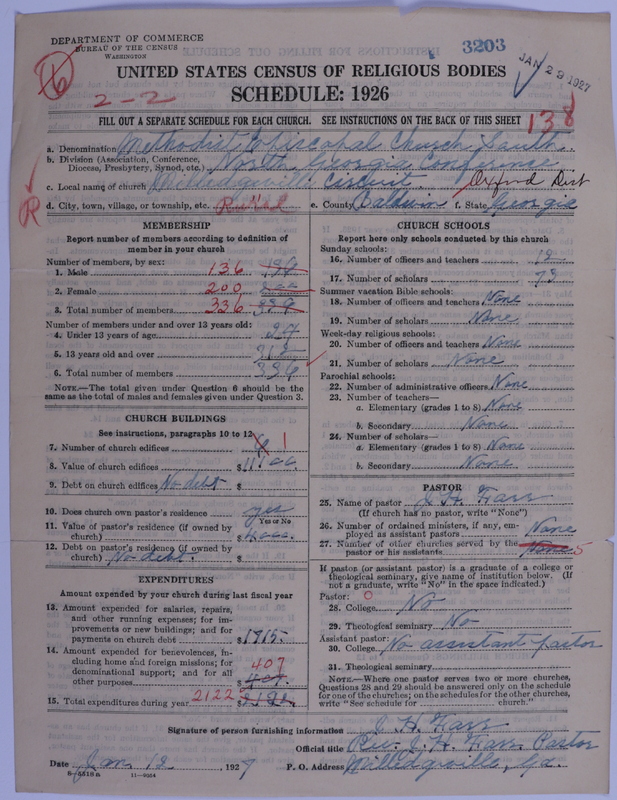 DEPARTMENT OF COMMERCE
BUREAU OF THE CENSUS
WASHINGTON
3203
JAN 29 1927
UNITED STATES CENSUS OF RELIGIOUS BODIES
2-2
SCHEDULE: 1926
FILL OUT A SEPARATE SCHEDULE FOR EACH CHURCH. SEE INSTRUCTIONS ON THE BACK OF THIS SHEET
138
a. Denomination Methodist Episcopal Church South.
b. Division (Association, Conference, Diocese, Presbytery, Synod, etc.) North Georgia Conference
c. Local name of church Milledgeville Circuit Oxford Dist
d. City, town, village, or township, etc. Rural e. County Baldwin f. State Georgia
R
MEMBERSHIP
Report number of members according to definition of member in your church
Number of members by sex:
1. Male 136
2. Female 200
3. Total number of members 336
Number of members under and over 13 years old:
4. Under 13 years of age
5. 13 years old and over
6. Total number of members 336
NOTE.—The total given under Question 6 should be the same as the total of males and females given under Question 3.
CHURCH BUILDINGS
See instructions, paragraphs 10 to 12
7. Number of church edifices 1
8. Value of church edifices $
9. Debt on church edifices No debt $
10. Does church own pastor's residence yes
Yes or No
11. Value of pastor's residence (if owned by church) $4000.
12. Debt on pastor's residence (if owned by church) No debt. $
EXPENDITURES
Amount expended by your church during last fiscal year
13. Amount expended for salaries, repairs, and other running expenses; for improvements or new buildings; and for payments on church debt $1715.
14. Amount expended for benevolences, including home and foreign missions; for denominational support; and for all other purposes $ 407
15. Total expenditures during year 2122 $
CHURCH SCHOOLS
Report here only schools conducted by this church
Sunday schools:
16. Number of officers and teachers 12
17. Number of scholars 73
Summer vacation Bible schools:
18. Number of officers and teachers None
19. Number of scholars None
Week-day religious schools:
20. Number of officers and teachers None
21. Number of scholars None
Parochial schools:
22. Number of administrative officers None
23. Number of teachers—
a. Elementary (grades 1 to 8) None
b. Secondary None
24. Number of scholars—
a. Elementary (grades 1 to 8) None
b. Secondary None
PASTOR
25. Name of pastor J. H. Farr
(If church has no pastor, write "None")
26. Number of ordained ministers, if any, employed as assistant pastors None
27. Number of other churches served by the pastor or his assistants None 5
If pastor (or assistant pastor) is a graduate of a college or theological seminary, give name of institution below. (If not a graduate, write "No" in the space indicated.)
Pastor: 0
28. College No
29. Theological seminary No
Assistant pastor:
30. College No assistant pastor
31. Theological seminary
NOTE.—Where one pastor serves two or more churches, Questions 28 and 29 should be answered only on the schedule for one of the churches; on the schedules for the other churches, write "See schedule for ............ church."
Signature of person furnishing information J. H. Farr
Official title Rev. J. H. Farr Pastor
Date Jan 12, 1927 P. O. Address Milledgeville, Ga.
6—5518a 11—9264